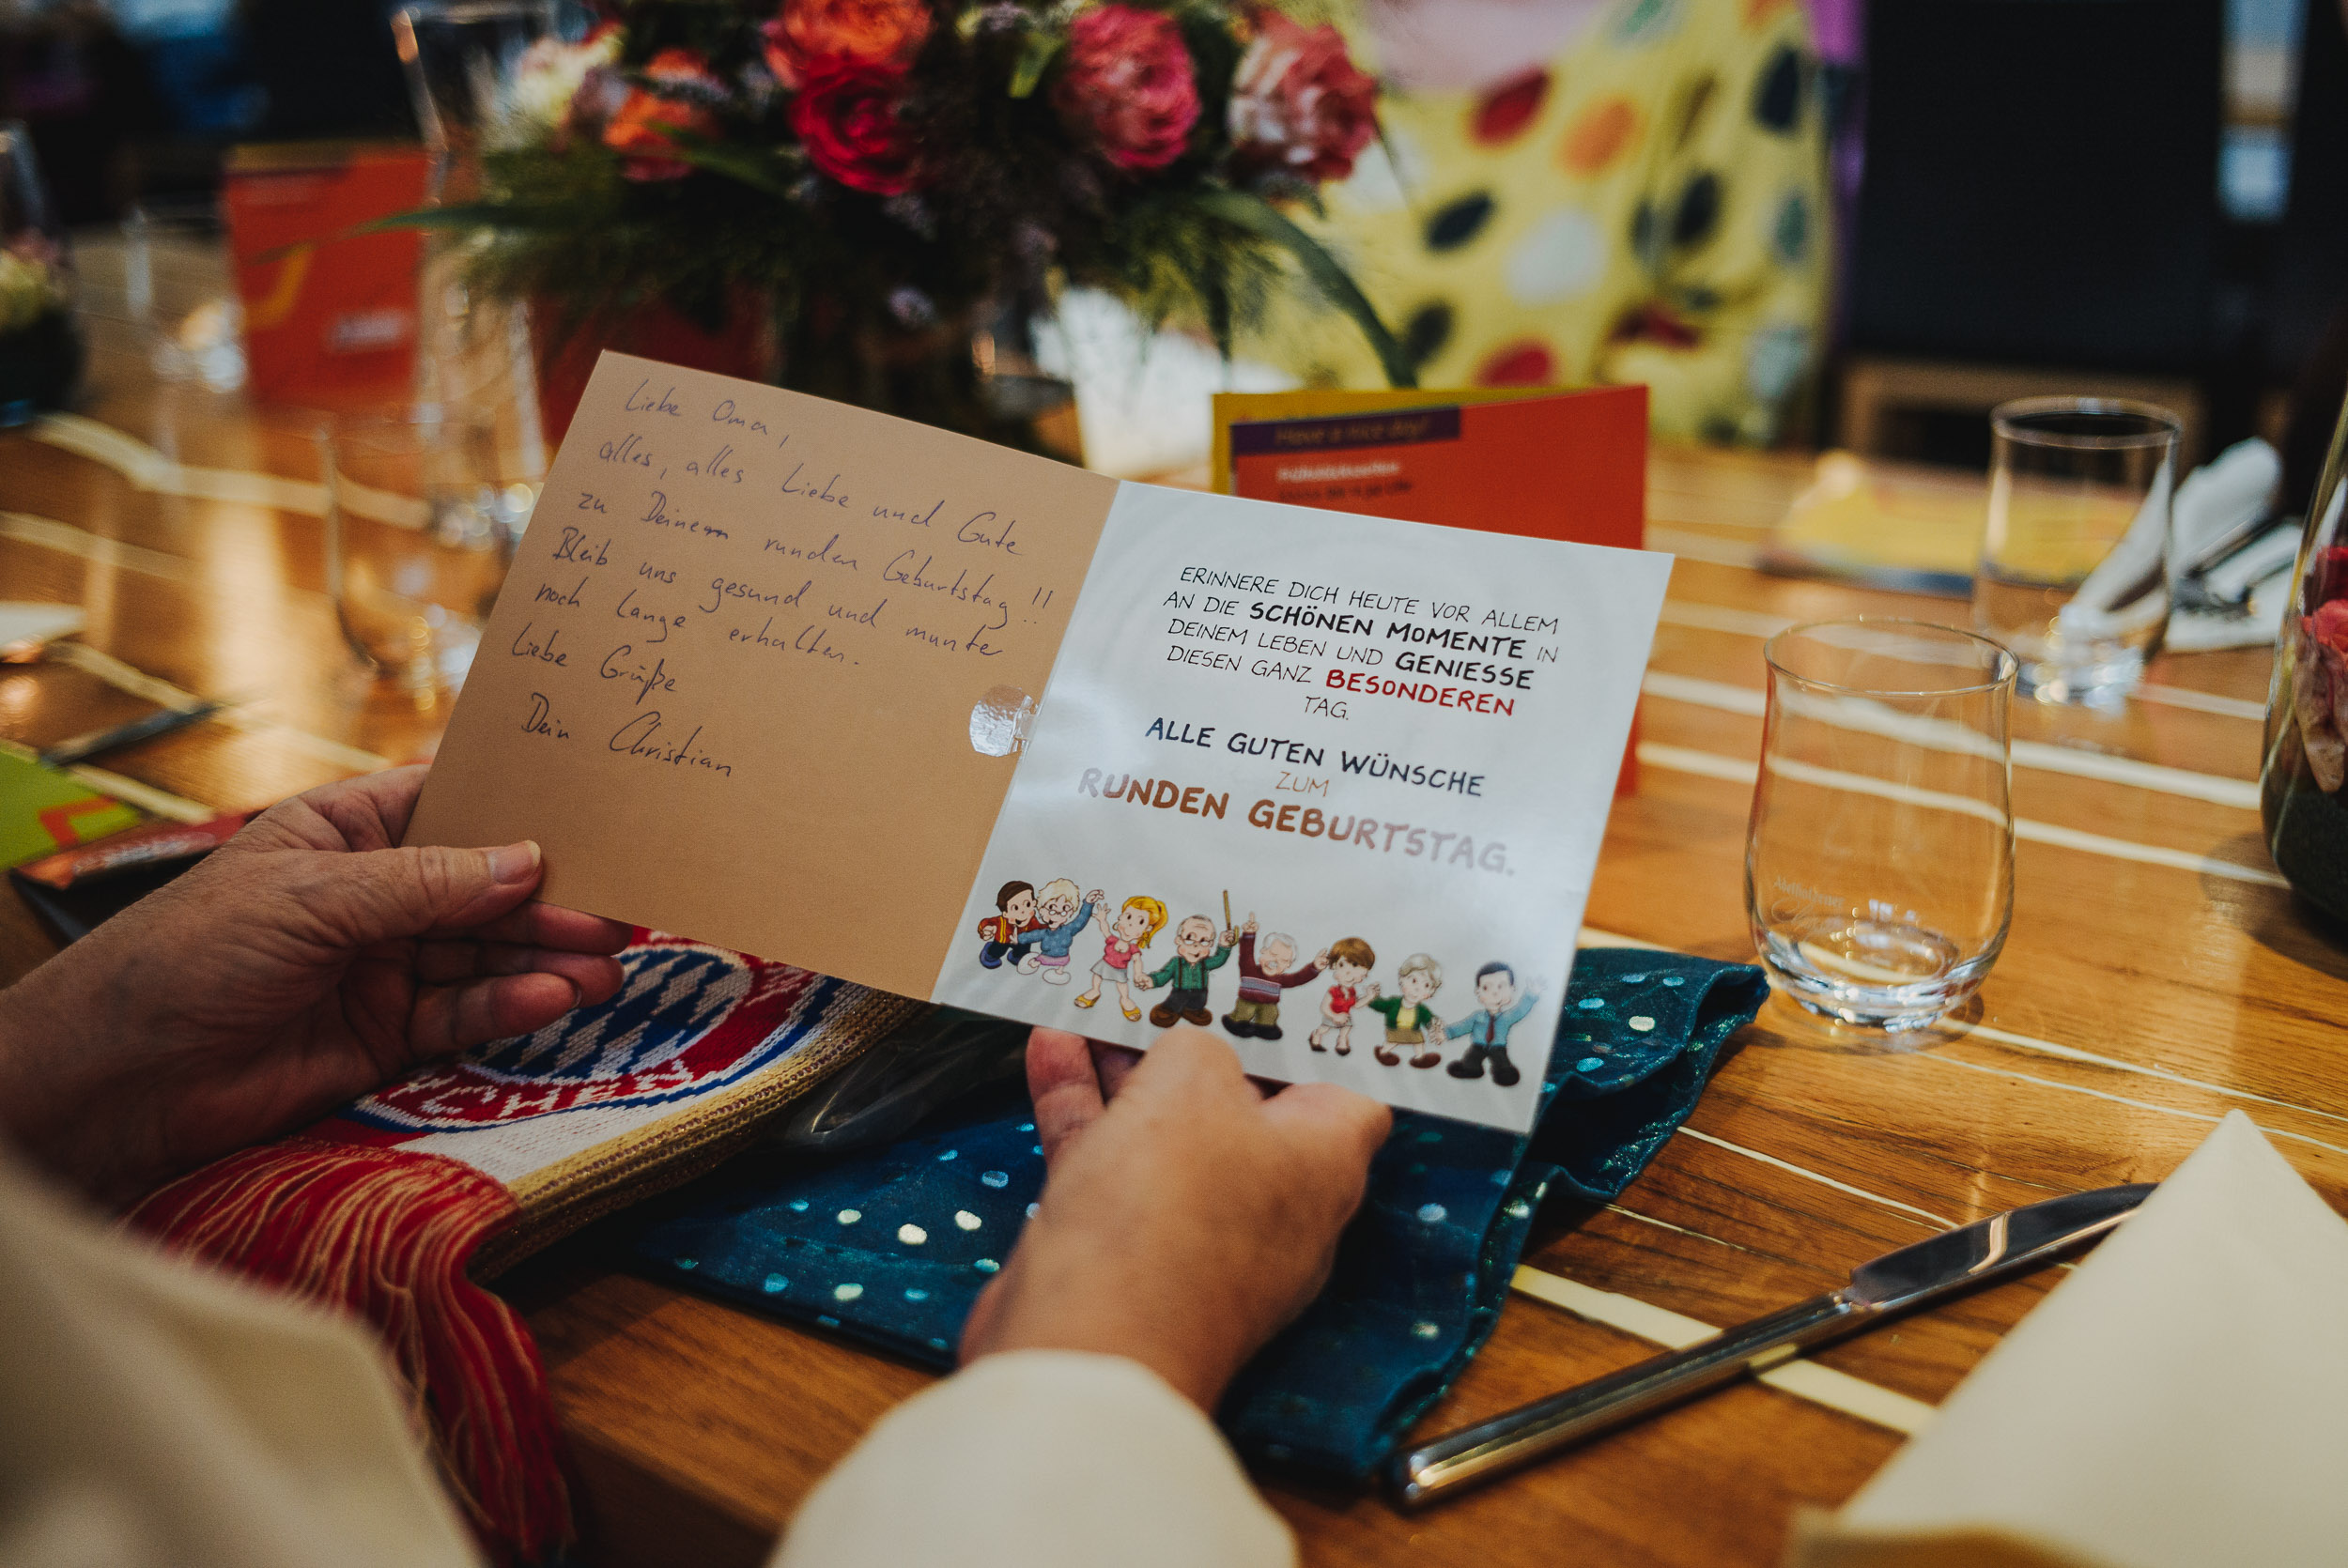 Liebe Oma,
alles, alles Liebe und Gute
zu Deinem runden Geburtstag!!
Bleib uns gesund und munter
noch lange erhalten.
Liebe Grüße
Dein Christian
ERINNERE DICH HEUTE VOR ALLEM
AN DIE SCHÖNEN MOMENTE IN
DEINEM LEBEN UND GENIESSE
DIESEN GANZ BESONDEREN
TAG.
ALLE GUTEN WÜNSCHE
ZUM
RUNDEN GEBURTSTAG.
Have a nice day!